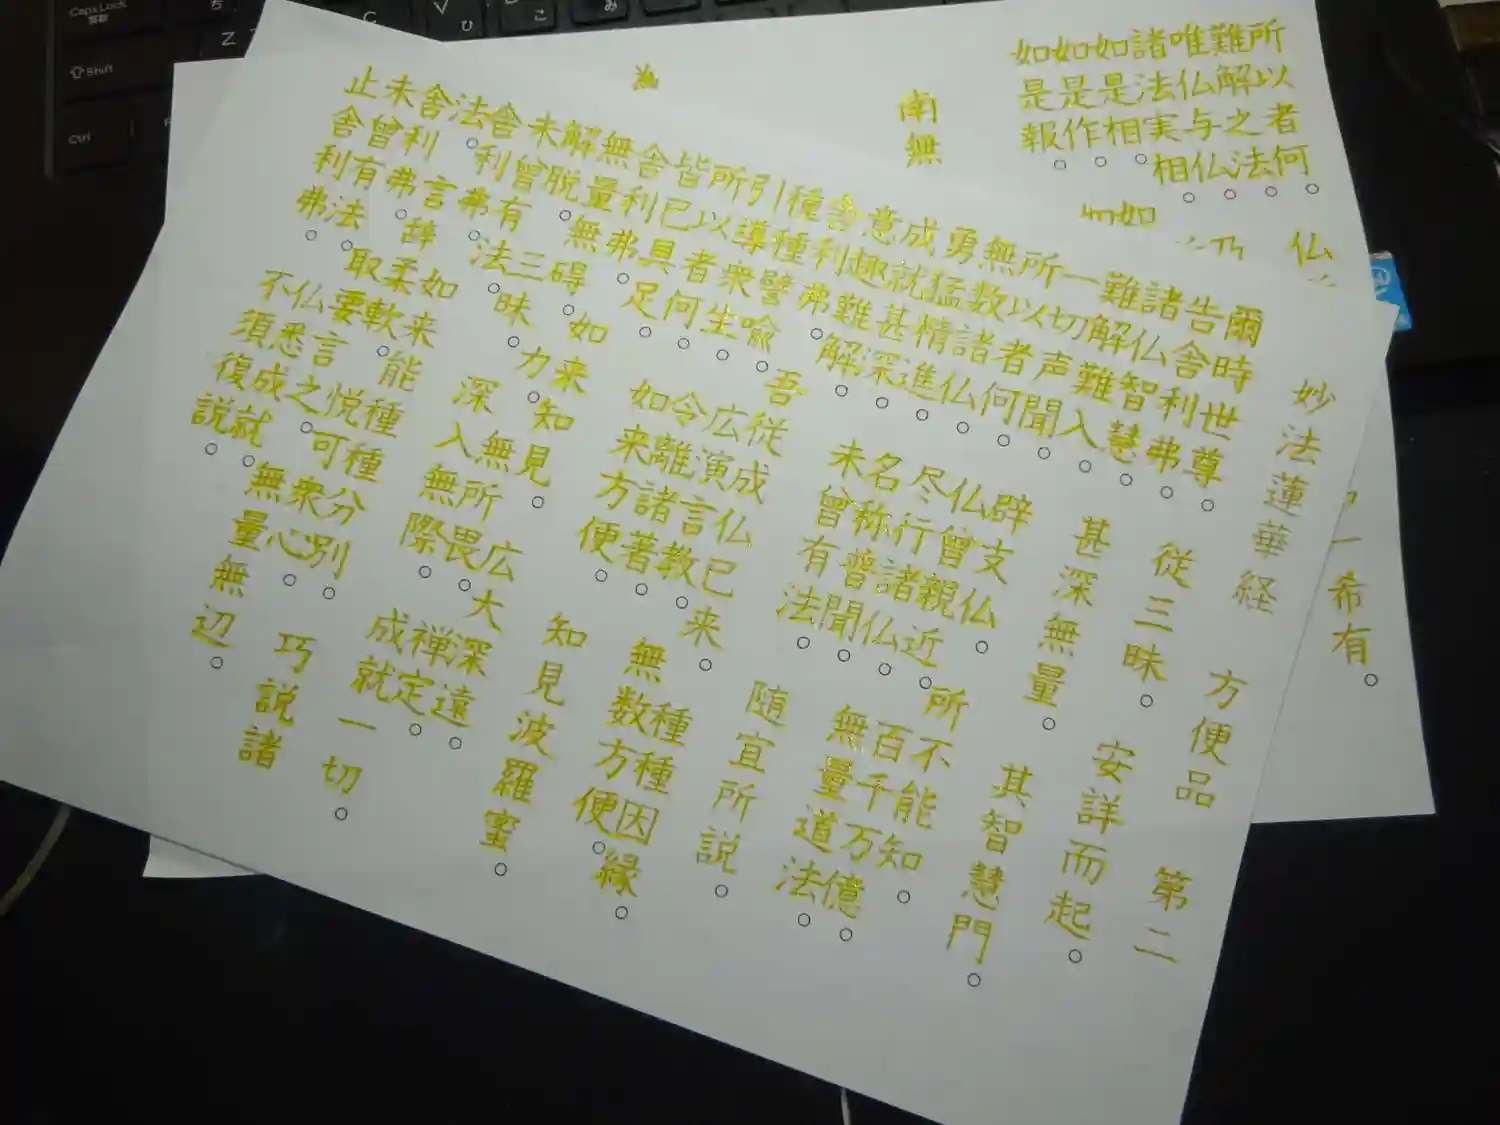 妙法蓮華経 方便品 第二
爾時世尊。従三昧。安詳而起。
告舎利弗。
諸仏智慧。甚深無量。其智慧門。
難解難入。
一切声聞。辟支仏。所不能知。
所以者何。仏曾親近。百千万億。
無数諸仏。尽行諸仏。無量道法。
勇猛情進。名称普聞。
成就甚深。未曾有法。随宜所説。
意趣難解。
舎利弗。吾従成仏已来。種種因縁。
種種譬喩。広演言教。無数方便。
引導衆生。令離諸著。
所以者何。如来方便。知見波羅蜜。
皆已具足。
舎利弗。如来知見。広大深遠。
無量無碍。力。無所畏。禅定。
解脱。三昧。深入無際。成就一切。
未曾有法。
舎利弗。如来能種種分別。巧説諸
法。言辞柔軟。悦可衆心。
舎利弗。取要言之。無量無辺。
未曾有法。仏悉成就。
止舎利弗。不須復説。
所以者何。仏
一希有。
難解之法。
唯仏与仏。乃
諸法実相。
如是相。如
如是作。如
如是報。
南無
Caps Lock
英数
Shift
Ctrl
Z
C
V
ひ
こ
み